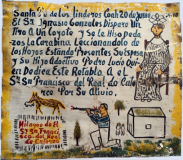 Santa de los Linderos Coah 20 de Junio
El Sr Ignasio Gonsales Disparo Un
Tiro A Un Coyote y Se le Hiso Pe
dasos La Carabina Leccionandolo de
los Hojos Estando Presentes Su Esposa
y Su Hijo Adoctivo Pedro Lucio Quien
Dedica Este Retablo A El
Sr Sn Francisco del Real de Cato
rce Por Su Alivio.
Milagro de El
Sr Sn Franci
sco del Rial
de Catorce